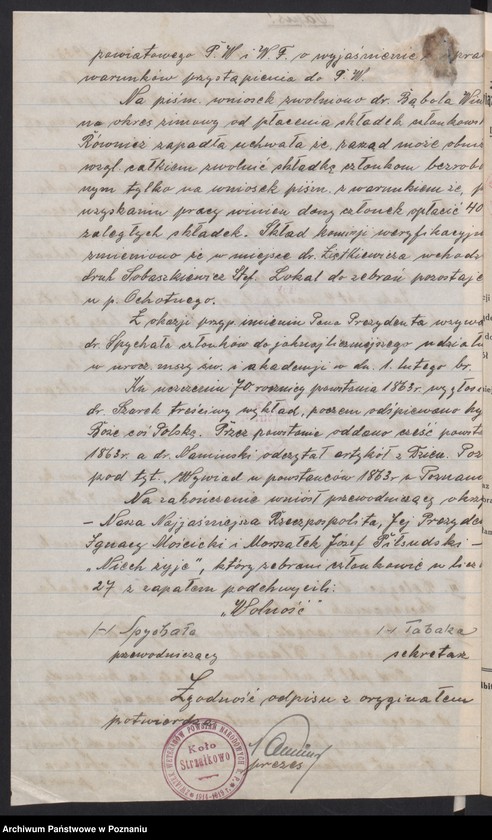 powiatowego P.W. i W.F. o wyjaśnienie
warunków przystąpienia do P.W.
Na piśm. wniosek zwolniono dr. Bąbola
na okres zimowy od płacenia składek członkowsk
Również zapadła uchwała że zarząd może obni
wzgl. całkiem zwolnić składkę członkom bezrobo
nym tylko na wniosek piśm. z warunkiem że, p
uzyskaniu pracy winien dany członek opłacić 40
zaległych składek. Skład komisji weryfikacyjn
zmieniono że w miejsce dr. Ziętkiewicza wchodz
druh Sobaszkiewicz Stef. Lokal do zebrań pozostaje
u p. Ochotnego.
Z okazji przyp. imienin Pana Prezydenta wzywa
dr. Spychała członków do jaknajliczniejszego udziału
w urocz. mszy św. i akademji w dn. 1. lutego br.
Ku uczczeniu 70. rocznicy powstania 1863 r. wygłos
dr. Szarek treściwy wykład, poczem odśpiewano hy
Boże coś Polskę. Przez powstanie oddano cześć powsta
1863 r. a dr. Namiński odczytał artykół z Dzien. Poz
pod tyt. „Wywiad u powstańców 1863 r. z Poznan
Na zakończenie wniósł przewodniczący okrzy
- Nasza Najjaśniejsza Rzeczpospolita, Jej Prezyden
Ignacy Mościcki i Marszałek Józef Piłsudski -
„Niech żyje", który zebrani członkowie w liczb
27 z zapałem podchwycili:
„Wolność"
/-/ Spychała /-/ Tabaka
przewodniczący sekretarz
Zgodność odpisu z oryginałem
potwierdza:
Koło
Strzałkowo
1914-1919
prezes
Archiwum Państwowe w Poznaniu